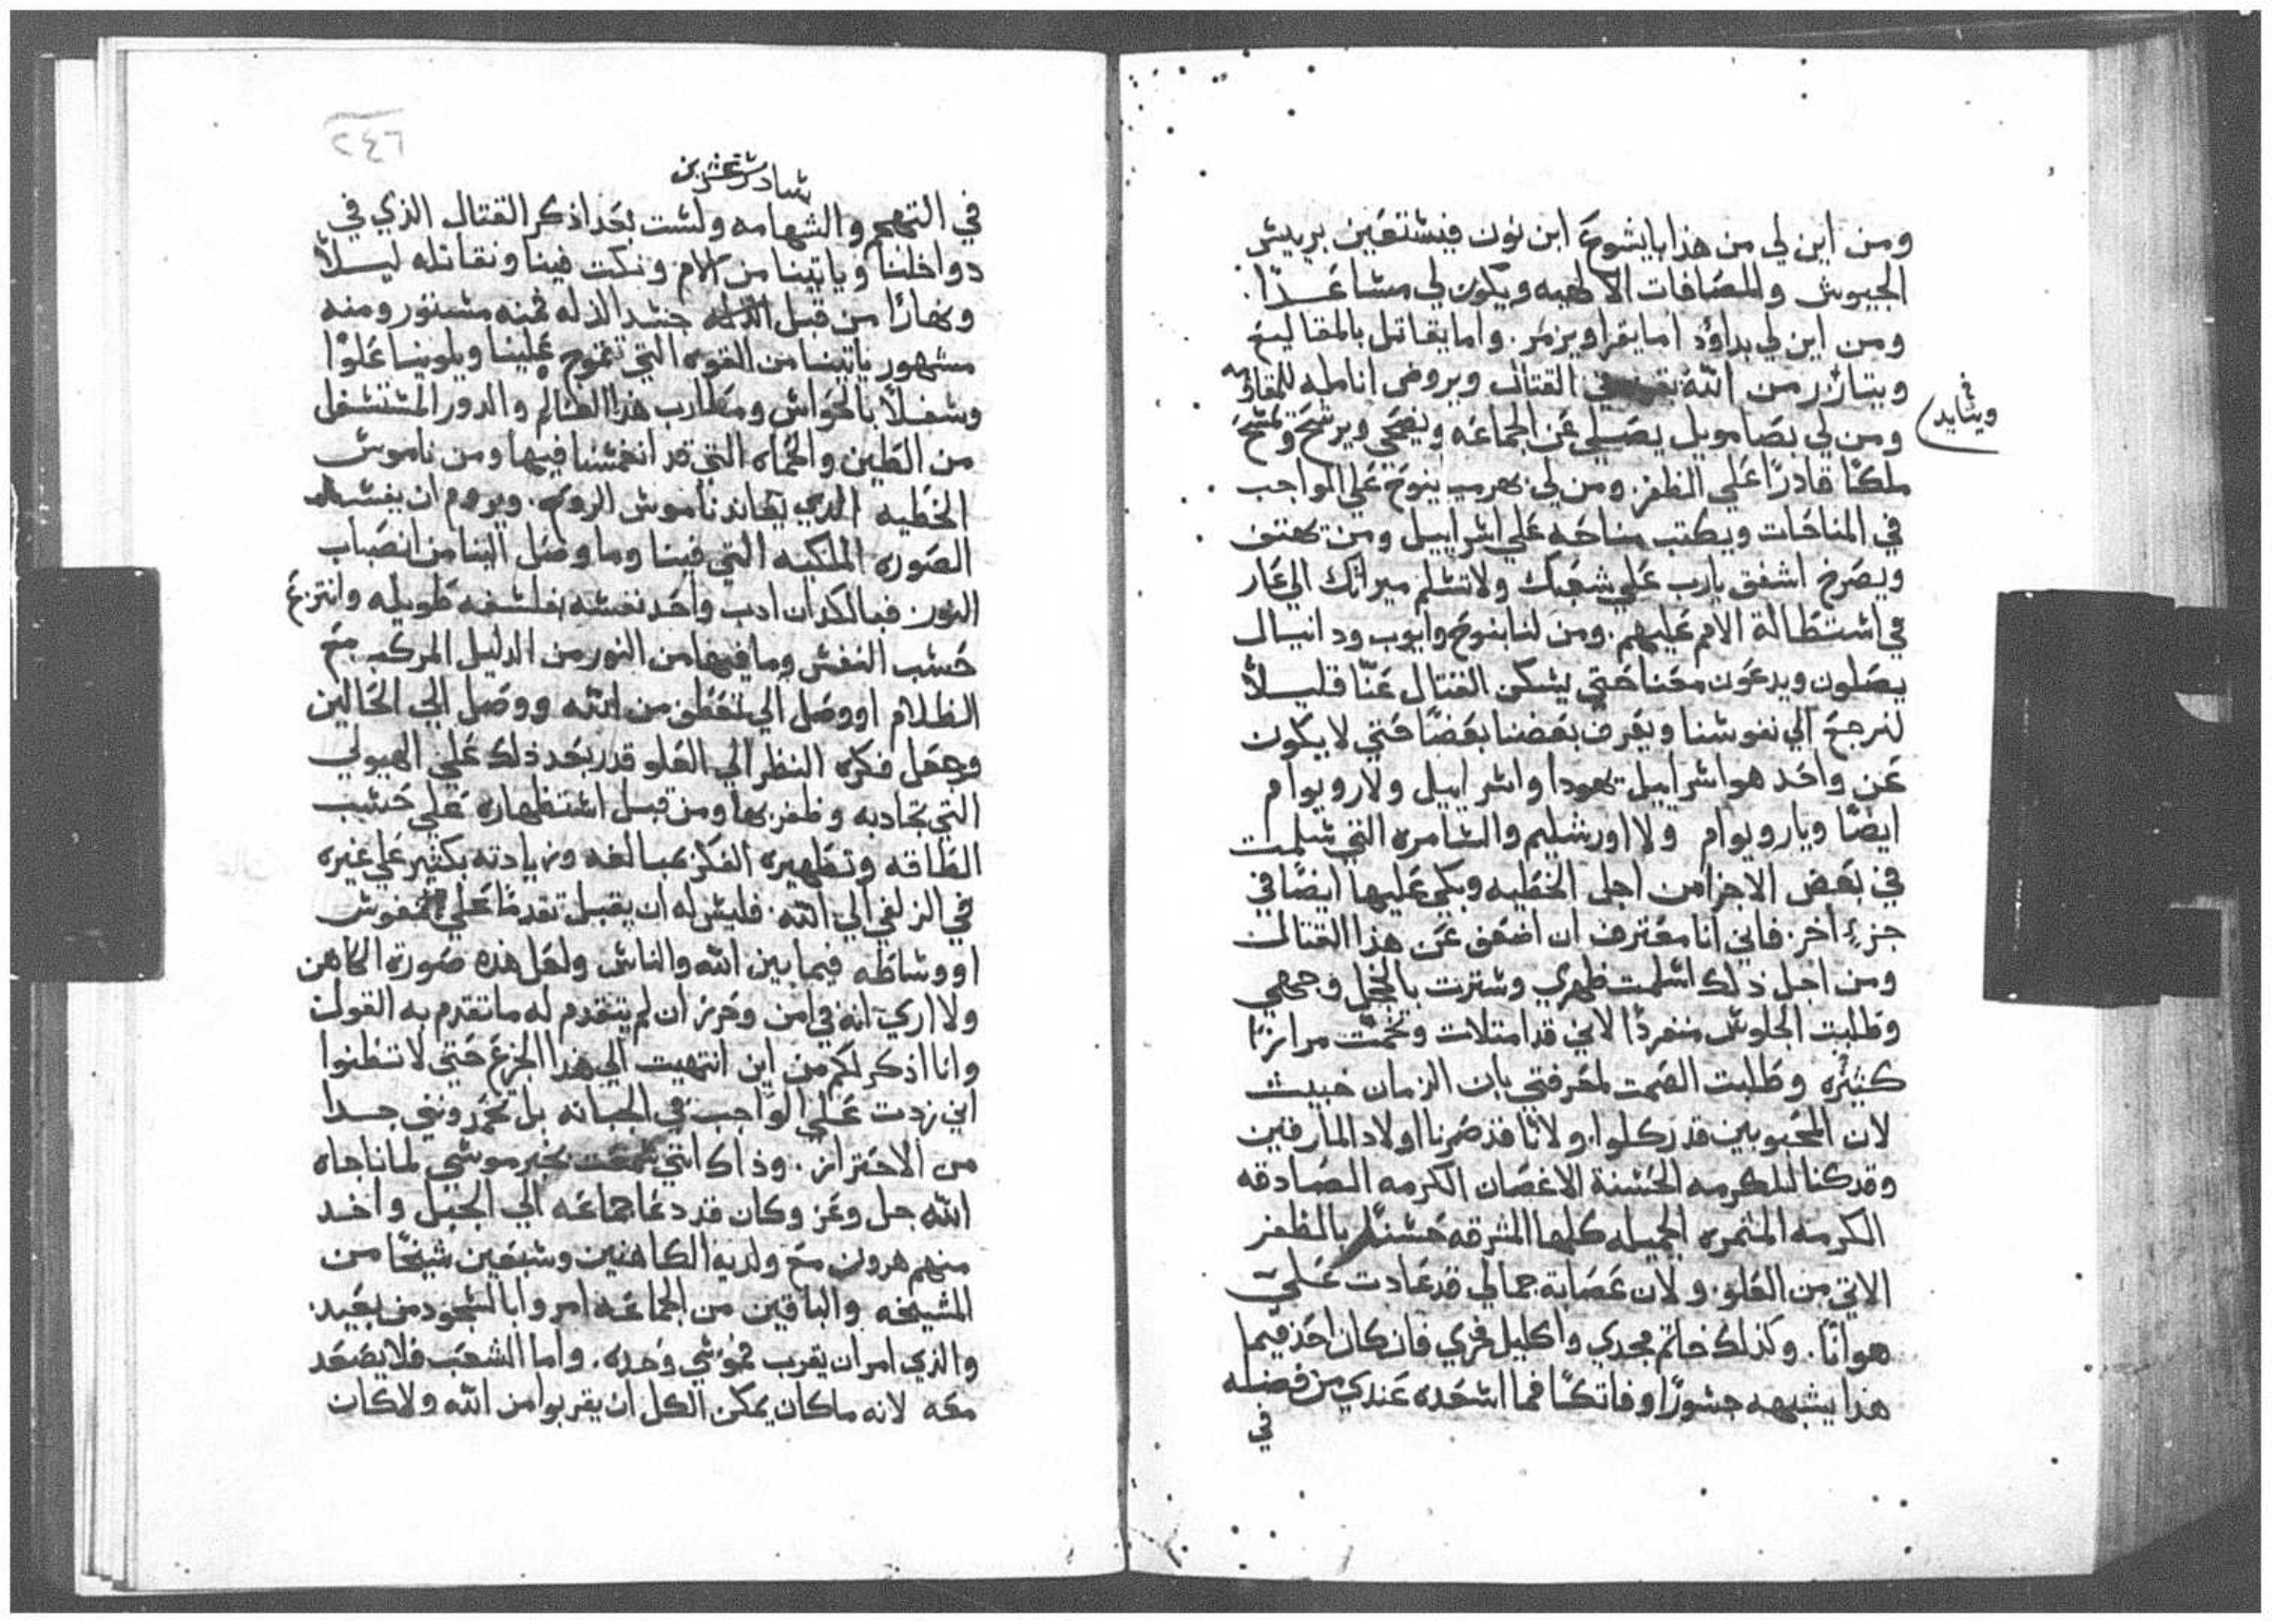 ومن اين لي من هذا بايشوع ابن نون فيستعين بريس
الجيوش والمصافات الالهيه ويكون لي مساعدًا.
ومن اين لي بداوٗد اما يقرا ويزمر. واما يقاتل بالمقاليع
ويتازر من الله في القتال ويروض انامله للمقاومه
ويتايد في
ومن لي بصامويل يصلي عن الجماعه ويضحي ويرشح ويمسح
ملكًا قادرًا علي الظفر. ومن لي ينوح علي الواجب
في المناحات ويكتب مناحه علي اسراييل ومن يهتف
ويصرخ اشفق يارب علي شعبك ولا تسلم ميراثك الي عار
في استطالة الامم عليهم. ومن لنا بنوح وايوب ودانيال
يصلون ويدعون معنا حتي يسكن القتال عنّا قليلاً
لنرجع الي نفوسنا ويعرف بعضنا بعضًا حتي لا يكون
عن واحد هو اسراييل يهودا واسراييل ولا روبوام
ايضًا وياروبوام ولا اورشليم والسامره التي سلمت
في بعض الاجزا من اجل الخطيه وبكي عليها ايضًا في
جزءٍ اخر. فاني انا معترف ان اضعف عن هذا القتال
ومن اجل ذلك اسلمت ظهري وسترت بالخجل وجهي
وطلبت الجلوس منفردًا لاني قد امتلات
كثيره وطلبت الصمت لمعرفتي بان الزمان خبيث
لان المحبوبين قد ركلوا. ولانّا قد صرنا اولاد المارقين
وقد كنا للكرمه الحسنة الاغصان الكرمه الصادقه
الكرمه المثمره الجميله كلها المشرقه حسنًا بالظفر
الاتي من العلو. ولان عصابة جمالي قد عادت عليّ
هوانًا. وكذلك خاتم مجدي واكليل فخري فان كان احد فيما
هذا يشبهه جسورًا وفاتكًا فما اسعده عندي من فضله
في
٢٤٦
سادس عشرين
في التهجم والشهامه ولست بعد اذكر القتال الذي في
دواخلنا وياتينا من الالام ونكت فينا ونقاتله ليلاً
ونهارًا من قبل جسد الذله فمنه مستور ومنه
مشهور ياتينا من القوه التي تموج علينا ويلوينا علوًا
وسفلاً بالحواس ومطارب هذا العالم والدور المستسفل
من الطين والحماه التي قد انغمسنا فيها ومن ناموس
الخطيه الذي يعاند ناموس الروح. ويروم ان يفسد
الصوره الملكيه التي فينا وما وصل الينا من انصباب
النور فبالكد ان ادب واحد نفسه بفلسفه طويله وانتزع
حسب النفس وما فيها من النور من الدليل المركب مع
الظلام او وصل الي تعطف من الله ووصل الي الحالين
وجعل فكره النظر الي العلو قدر بعد ذلك علي الهيولي
التي تجاذبه وظفر بها ومن قبل استظهاره علي حسب
الطاقه وتطهيره الفكر مبالغه وزيادته بكثير علي غيره
في الزلفي الي الله. فليس له ان يقبل تقدمًا علي النفوس
او وساطه فيما بين الله والناس ولعل هذه صورة الكاهن
ولا اري انه في امن وحرز ان لم يتقدم له ما تقدم به القول
وانا اذكر لكم من اين انتهيت الي هذا الجزع حتي لا تظنوا
اني زدت علي الواجب في الجبانه بل تحمدونني جدا
من الاحتراز. وذاك انني سمعت بخبر موسي لما ناجاه
الله جل وعز وكان قد دعا جماعه الي الجبل واحد
منهم هرون مع ولديه الكاهنين وسبعين شيخًا من
المشيخه والباقين من الجماعه امروا بالسجود من بعيد.
والذي امر ان يقرب فموسي وحده. واما الشعب فلا يصعد
معه لانه ما كان يمكن الكل ان يقربوا من الله ولا كان